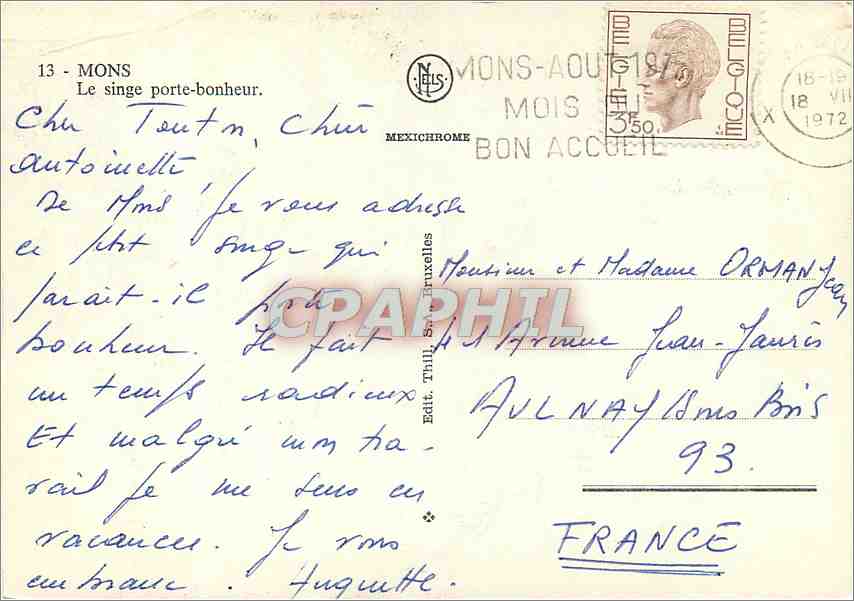 13 - MONS
Le singe porte-bonheur.
NELS
MEXICHROME
MONS-AOUT 197
MOIS DU
BON ACCUEIL
BELGIE BELGIQUE
3F50
18-19
18 VII
1972
X
Cher Tonton, Chère
Antoinette
De Mons je vous adresse
ce petit singe qui
parait-il porte
bonheur. Il fait
un temps radieux
Et malgré mon tra-
vail je me sens en
vacances. Je vous
embrasse. Huguette.
CPAPHIL
Edit. Thill, S.A. Bruxelles
Monsieur et Madame ORMAN Jean
41 Avenue Jean-Jaurès
AULNAY/sous Bois
93.
FRANCE